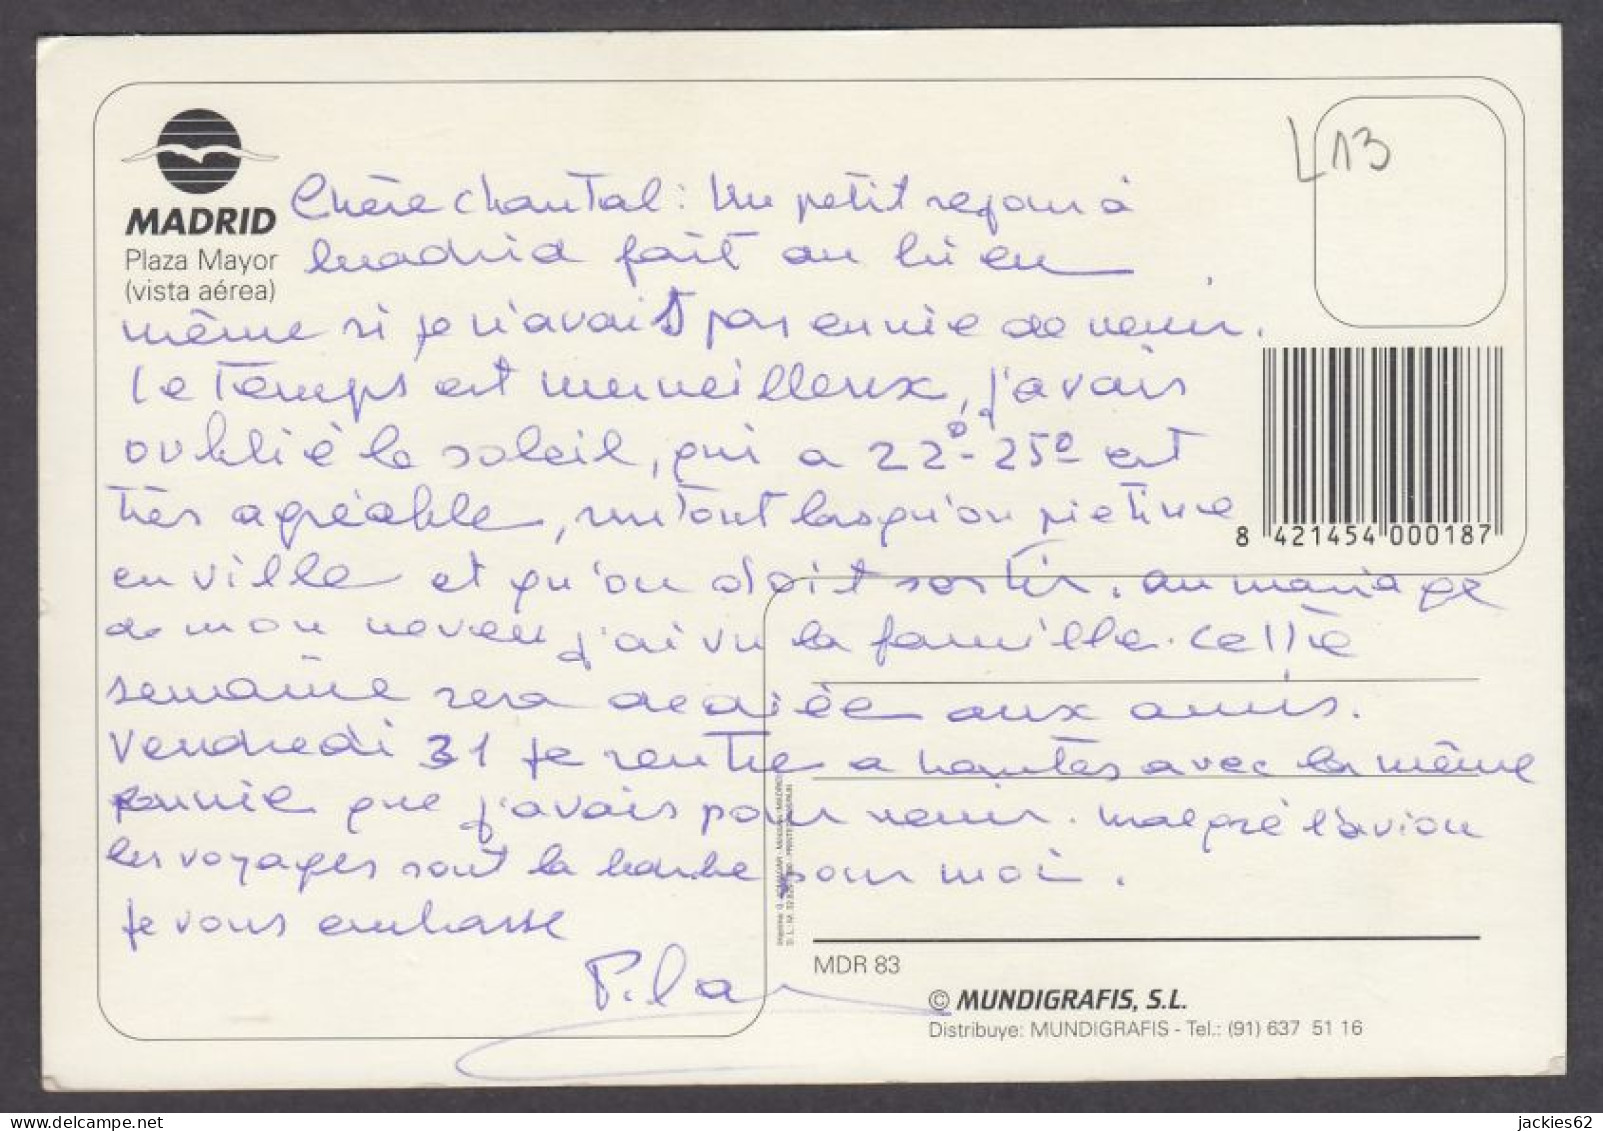 L13
MADRID
Plaza Mayor
(vista aérea)
Chère Chantal : Un petit sejour à
Madrid fait du bien
même si je n'avais pas envie de venir.
Le temps est merveilleux, j'avais
oublié le soleil, qui a 22º-25º est
très agréable, surtout lorsqu'on piétine
en ville et qu'on doit sortir. Au mariage
de mon neveu j'ai vu la famille. Cette
semaine sera dediée aux amis.
Vendredi 31 je rentre a Nantes avec la même
envie que j'avais pour venir. Malgré l'avion
les voyages sont la barbe pour moi.
Je vous embrasse
Pilar
8 421454 000187
MDR 83
© MUNDIGRAFIS, S.L.
Distribuye: MUNDIGRAFIS - Tel.: (91) 637 51 16
jackies62